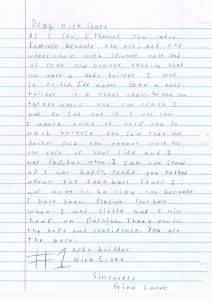 Dear, Nick Scott
As I saw, I thought you were
famouse because the tie, and the
wheel chair with spinner rims and
as soon you started talking that
you were a body builder I was
so excited I've never seen a body
builder in a wheel chair. When you
talked about the car crash I
was so sad and if I was there
I would tried to help you so
much because you said that the
doctor said you cannot walk for
the rest of your life and I
was sad, but when I saw you stand
up I was happy, sense you talked
about the foot ball rules I
was going to be like you because
I have been playing foot ball
when I was little and I will
keep on pushing. Thank you for
the hope and confidence. You are
the best.
#1 body builder
Nick Scott
Sincerely
Gino